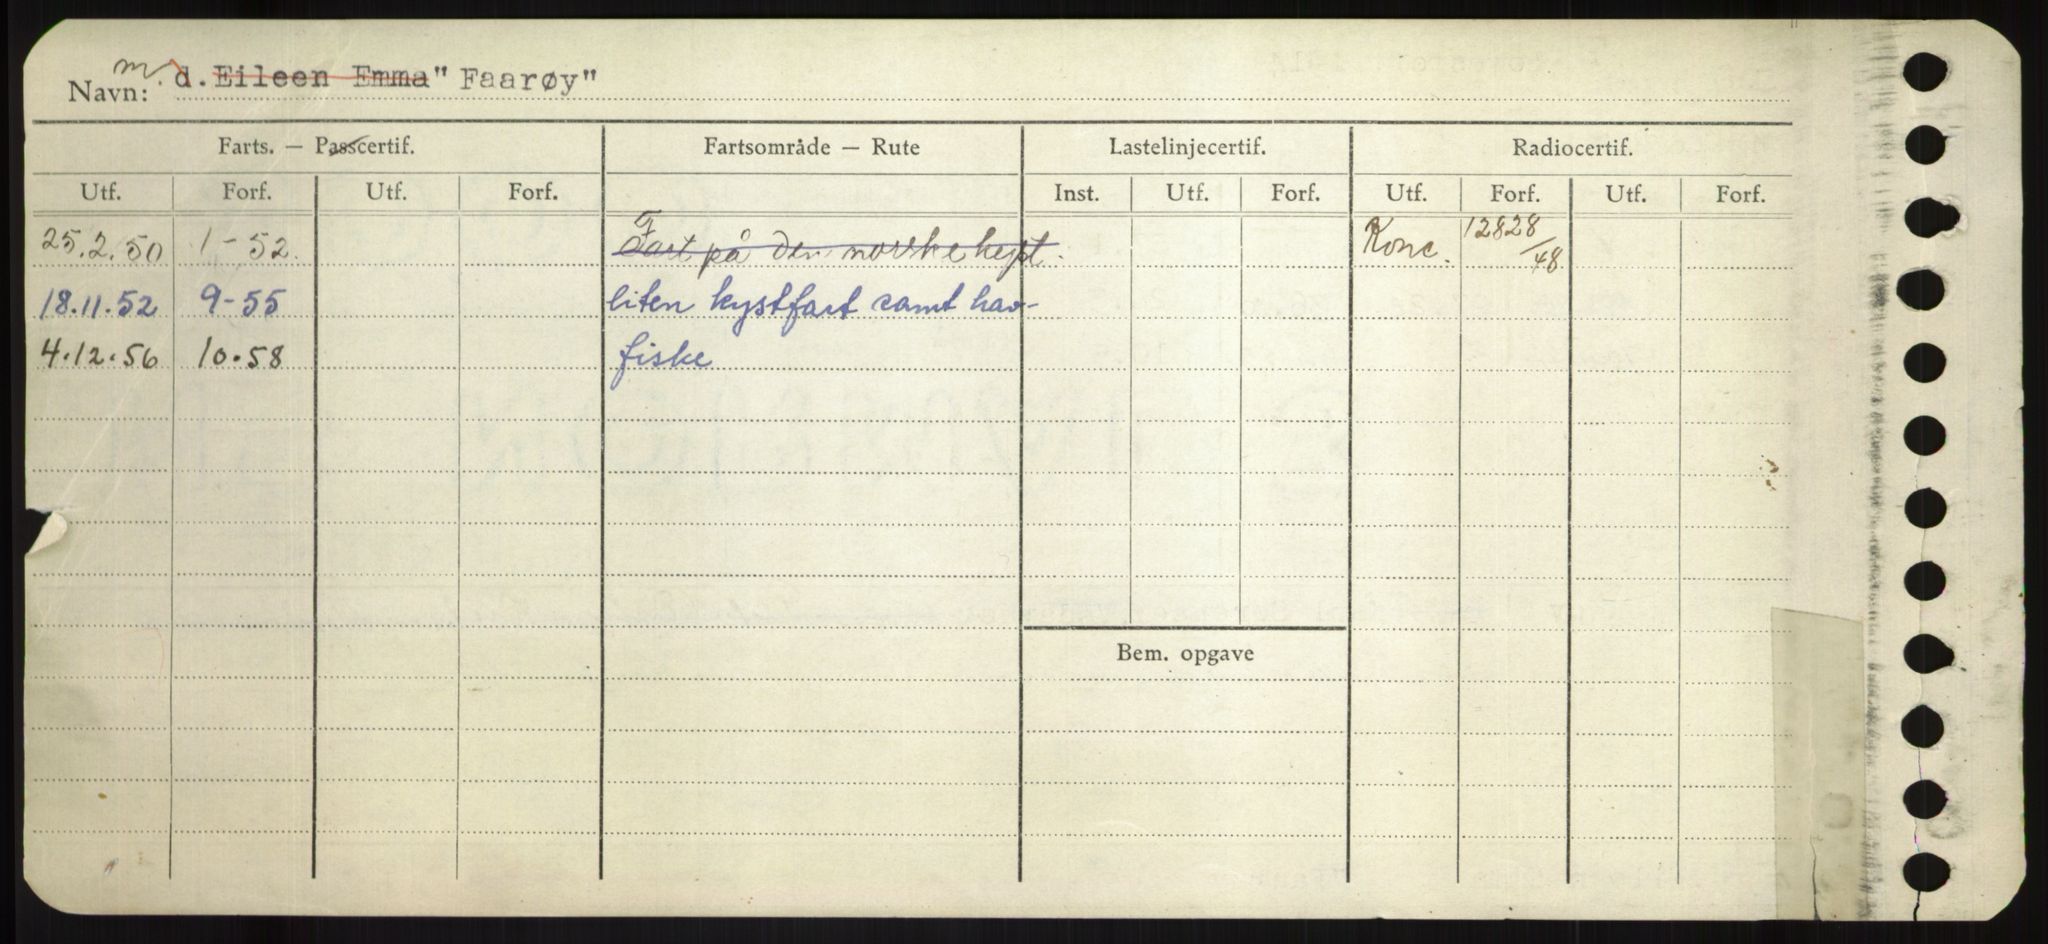 Navn: m. d. Eileen Emma "Faarøy"
Farts. — Passcertif. Fartsområde — Rute Lastelinjecertif. Radiocertif.
Utf. Forf. Utf. Forf. Inst. Utf. Forf. Utf. Forf. Utf. Forf.
25.2.50 1-52. Fart på den norske kyst. Konc. 12828/48
18.11.52 9-55 liten kystfart samt hav-
4.12.56 10.58 fiske
Bem. opgave